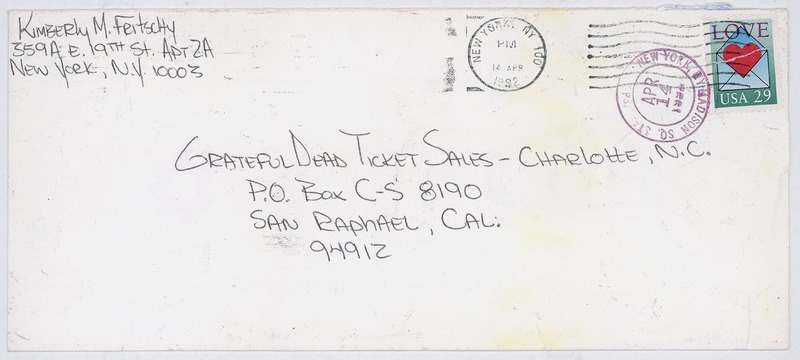 Kimberly M. Feitschy
359A E. 19TH St. Apt 2A
New York, N.Y. 10003
NEW YORK, NY 100
PM
14 APR
1992
NEW YORK, MADISON SQ. STA.
APR
14
LOVE
USA 29
Grateful Dead Ticket Sales - Charlotte, N.C.
P.O. Box C-S 8190
San Raphael, Cal.
94912